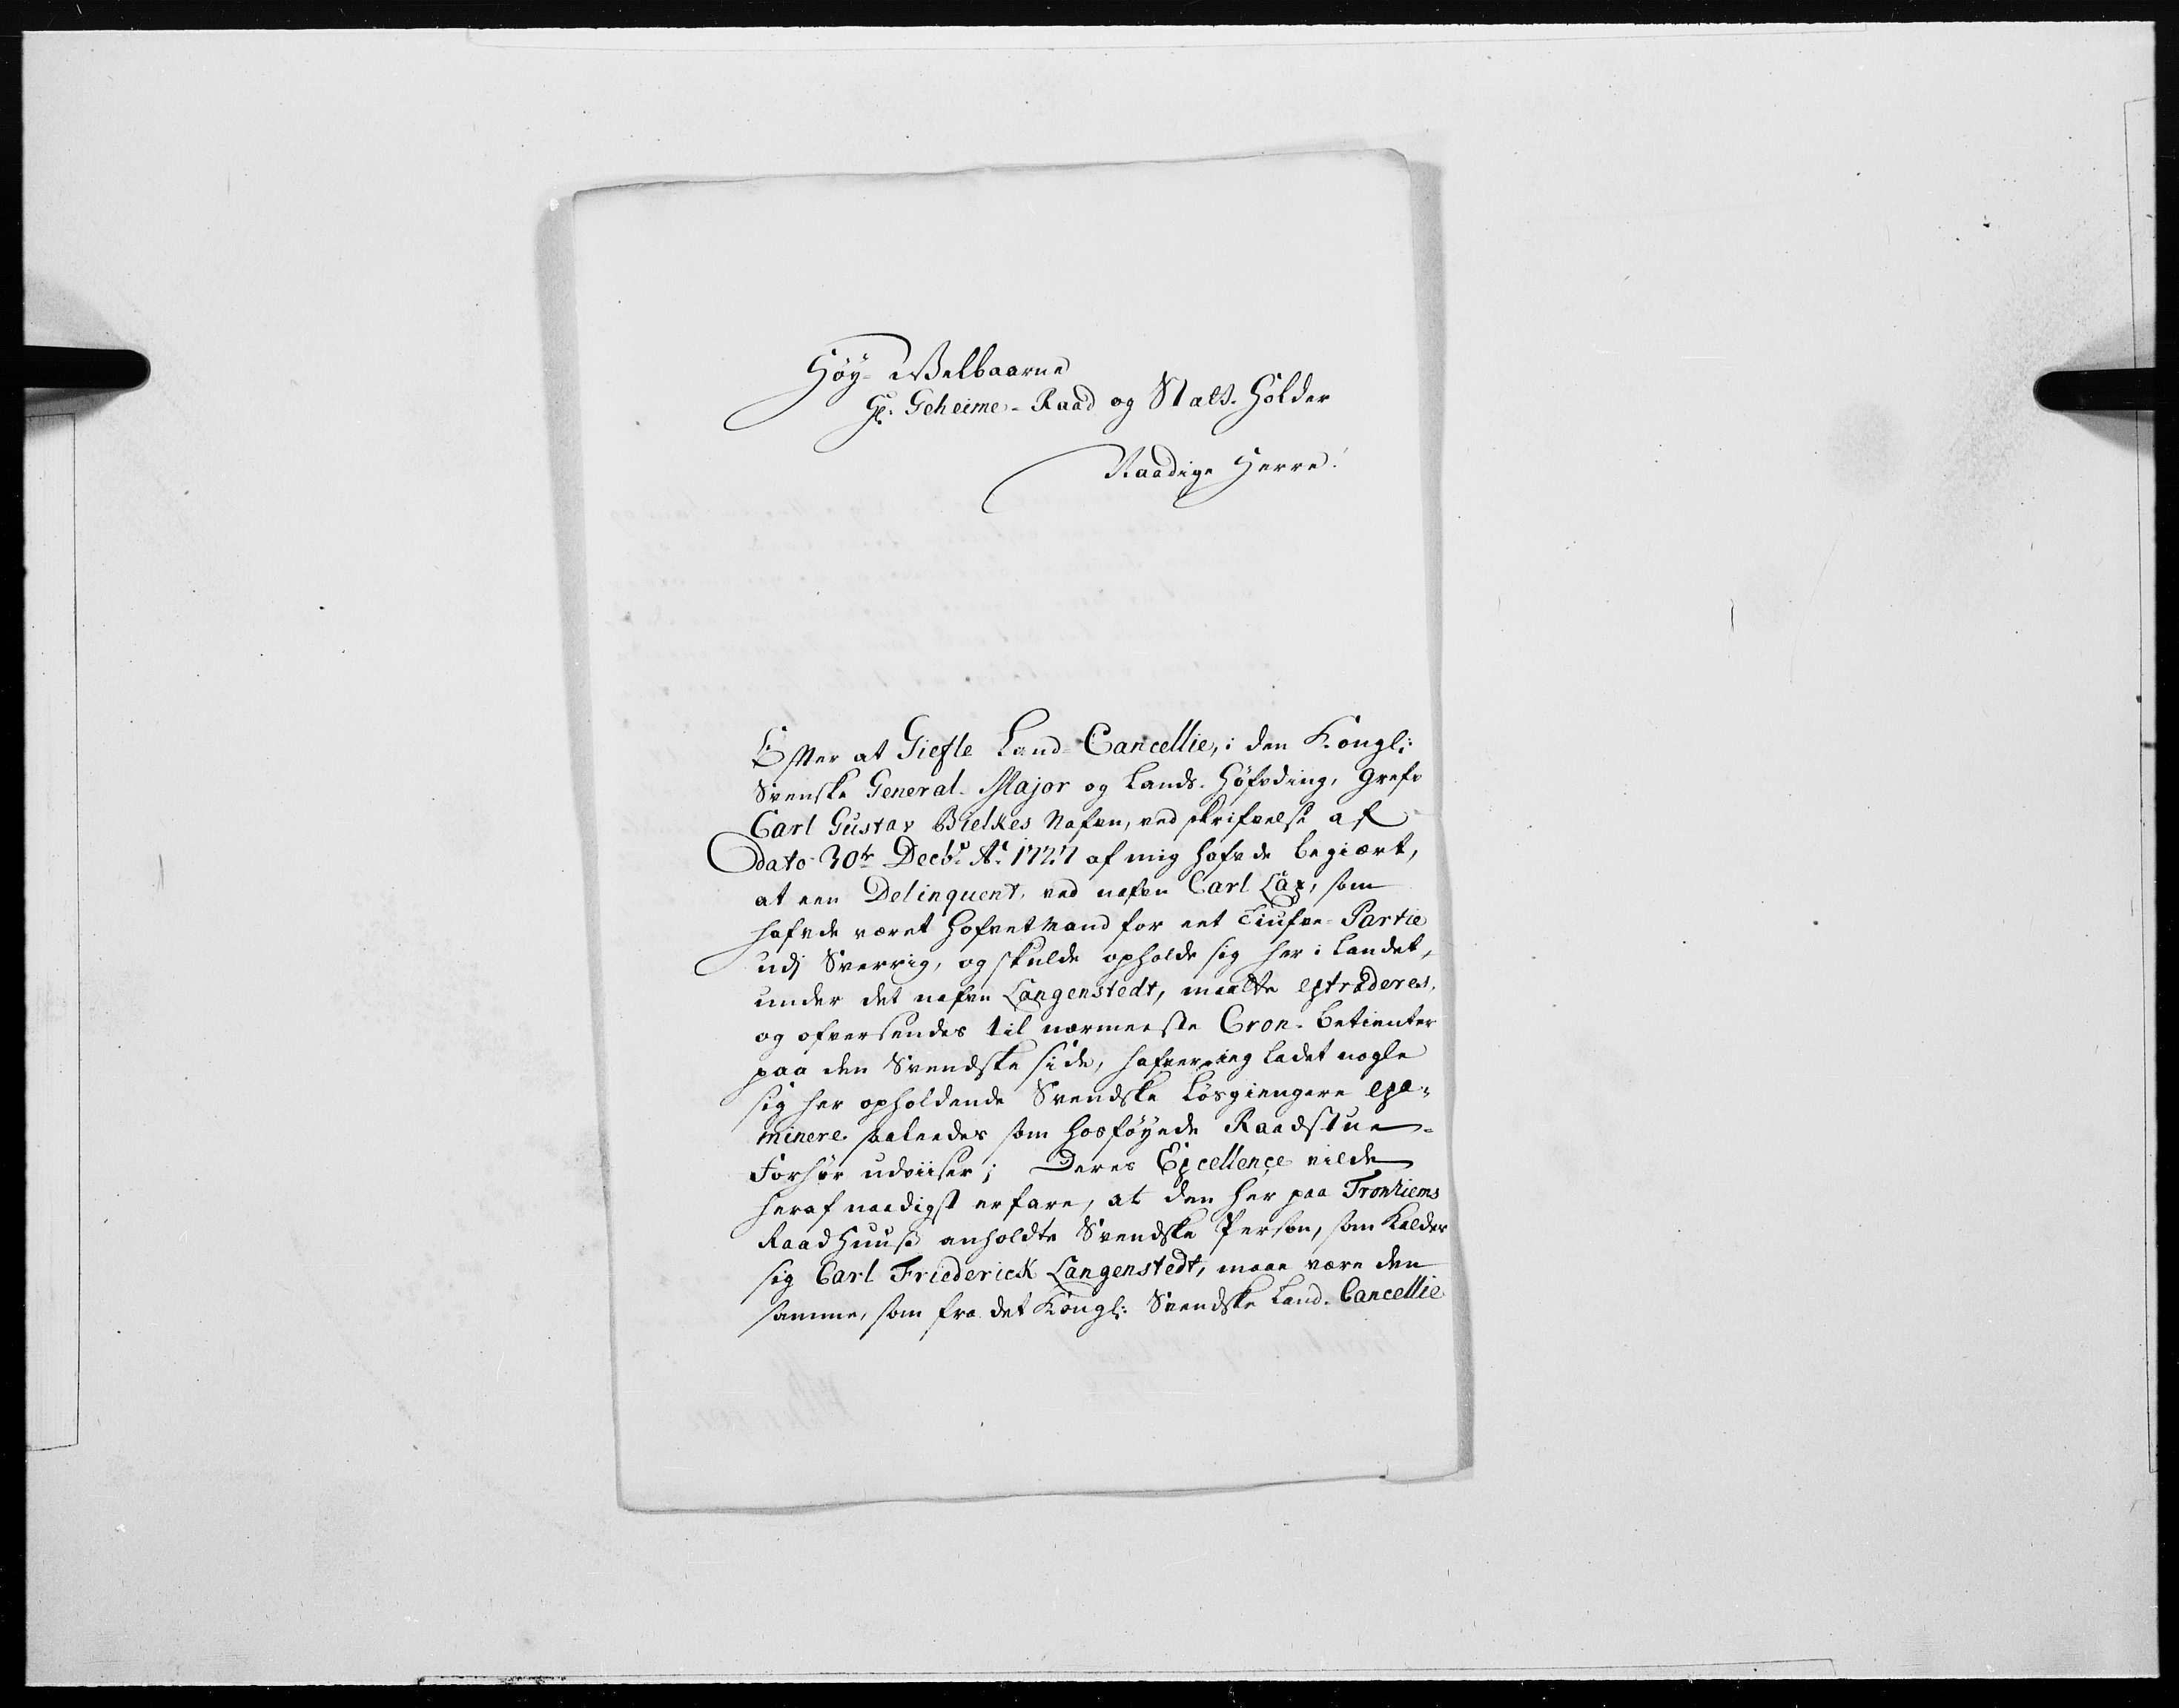 Höy-Welbaarne
Hr. Geheime-Raad og Stats-Holder
Naadige Herre!
Efter at Giefle Land-Cancellie, i den Kongl:
Svenske General-Major og Lands-Høfvding, Grefve
Carl Gustav Bielkes Nafvn, ved skrifvelse af
dato 30te Decbr. Ao. 1727 af mig hafvde begiært,
at een Delinquent, ved nafvn Carl Lax, som
hafvde været Hofvetmand for eet Tiufve-Partie
udj Sverrig, og skulde opholde sig her i Landet,
under det nafvn Langenstedt, maatte extraderes,
og ofversendes til nærmeeste Cron-betienter
paa den Svendske side, hafver ieg ladet nogle
sig her opholdende Svendske Løsgiengere exa-
minere saaleedes som hosføyede Raadstue-
Forhør udviiser; Deres Excellençe vilde
heraf naadigst erfare, at den her paa Tronhiems
Raadhuuse anholdte Svendske Person, som kalder
sig Carl Friederick Langenstedt, maae være den
samme, som fra det Kongl: Svendske Land-Cancellie